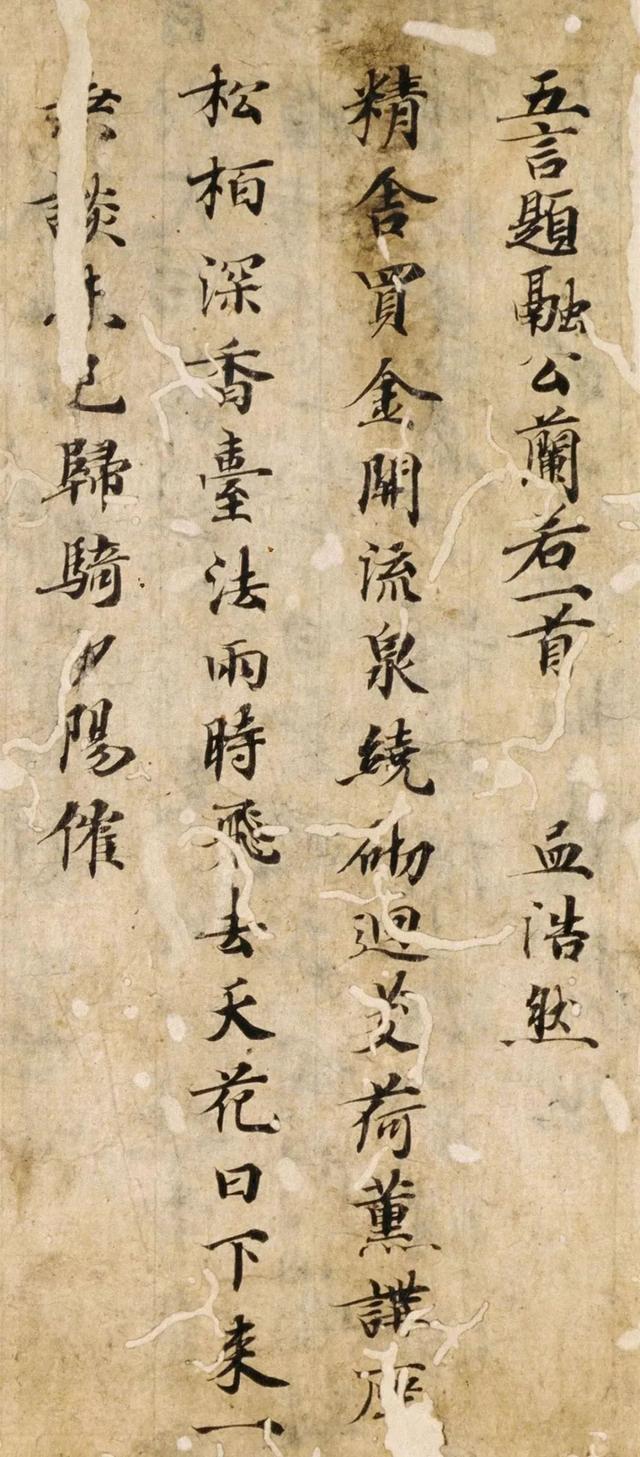 五言題融公蘭若一首 孟浩然
精舍買金開流泉繞砌迴芰荷薰講座
松柏深香臺法雨時飛去天花日下来一
談未已歸騎夕陽催